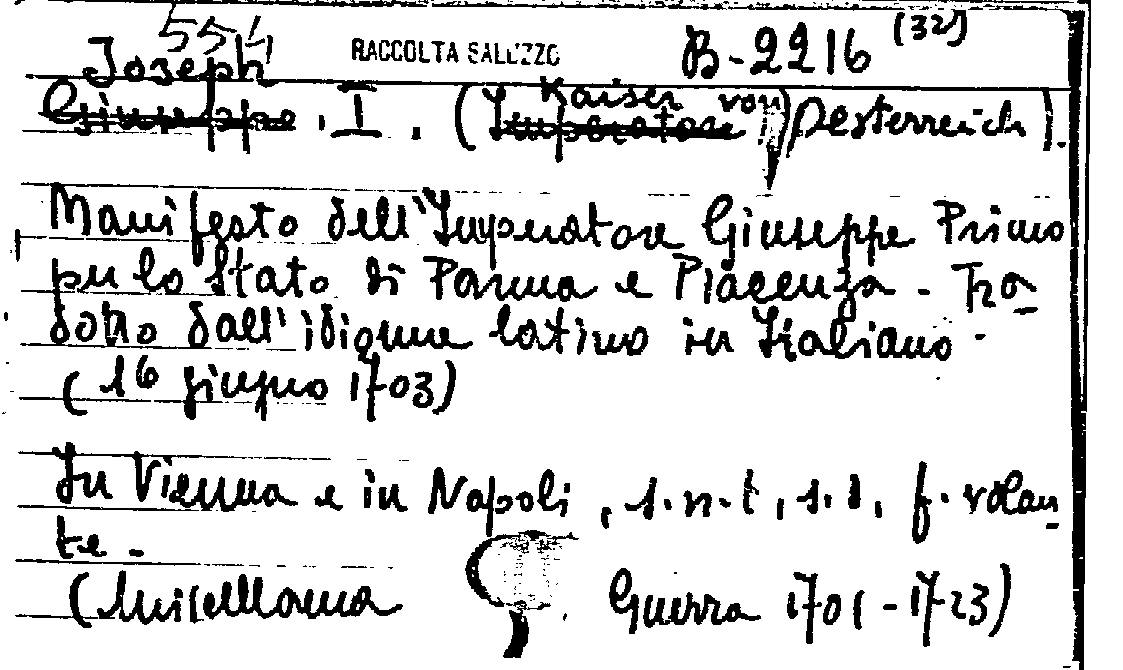 554
Joseph RACCOLTA SALUZZO B-2216 (32)
Giuseppe . I . (Imperatore Kaiser von Oesterreich).
Manifesto dell'Imperatore Giuseppe Primo
per lo Stato di Parma e Piacenza - Tra-
dotto dall'idioma latino in Italiano -
(16 giugno 1703)
In Vienna e in Napoli, s.n.t, s.d, f. volan-
te -
(Miscellanea Guerra 1701-1723)